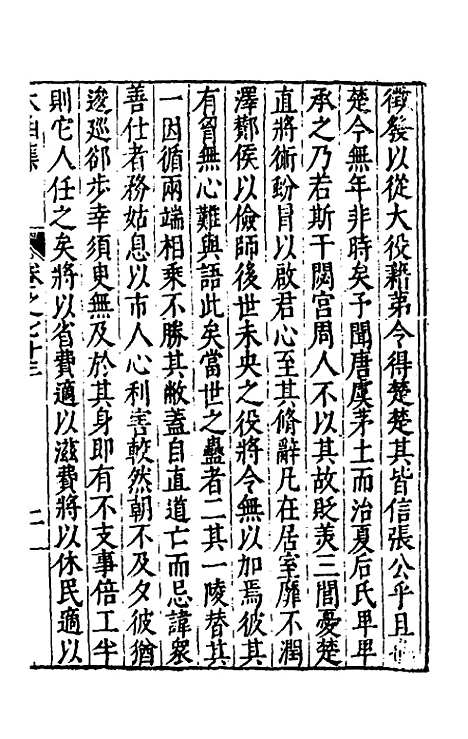 徵發以從大役藉苐令得楚楚其皆信張公乎且
楚今無年非時矣予聞唐虞茅土而治夏后氏卑卑
承之乃若斯干閟宮周人不以其故貶羙三閭憂楚
直將術蚡冒以啟君心至其脩辭凡在居室靡不潤
澤酇侯以儉師後世未央之役將令無以加焉彼其
有胷無心難與語此矣當世之蠱者二其一陵替其
一因循兩端相乘不勝其敝蓋自直道亡而忌諱衆
善仕者務姑息以市人心利害較然朝不及夕彼猶
逡廵卻步幸須臾無及於其身即有不支事倍工半
則它人任之矣將以省費適以滋費將以休民適以
太函集
卷之七十三
二